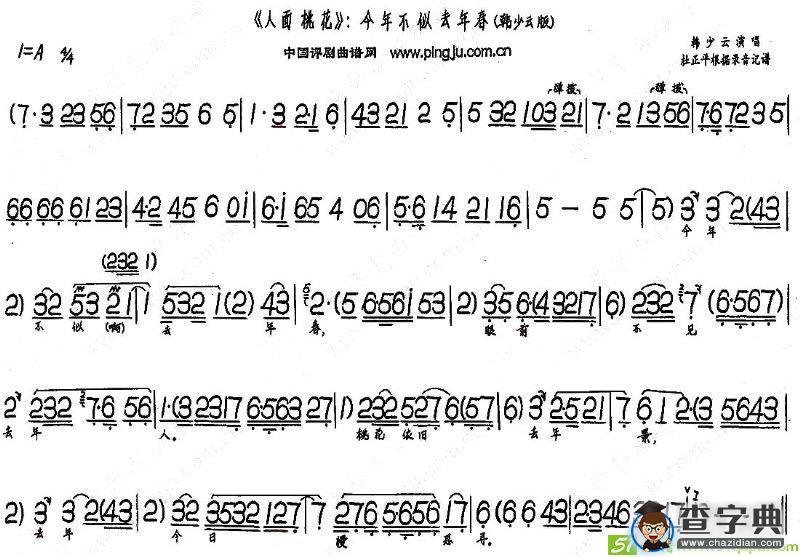 《人面桃花》：今年不似去年春(韩少云版)
1=A 4/4 中国评剧曲谱网 www.pingju.com.cn 韩少云演唱
杜正平根据录音记谱
弹拨 弹拨
(7·3 23 56|72 35 6 5|1·3 21 6|43 21 2 5|5 32 103 21|7· 2 13 56|7·6 72 3 5|
66 66 61 23|4·2 45 6 0i|6·i 65 4 06|5·6 14 21 16|5 — 5 5|5) 3 3 2(43|
今 年
(232 1)
2) 32 53 21|1 532 1(2) 43|2·(5 6·561 53|2) 35 6·(4 3217|6) 232 7 (6·567|
不 似 (啊) 去 年 春, 眼 前 不 见
2 232 7·6 56|1·(3 2317 6·563 27|1) 232 527 6(57|6) 3 2·5 21|7 61 2·(3 5643|
去 年 人。 桃花 依旧 去 年 景,
2) 3 3 2(43|2) 32 3532 127|7 276 5656 17|6· (6 6 43|2346
去 年 今 日 搜 寻。
查字典
www.chazidian.com